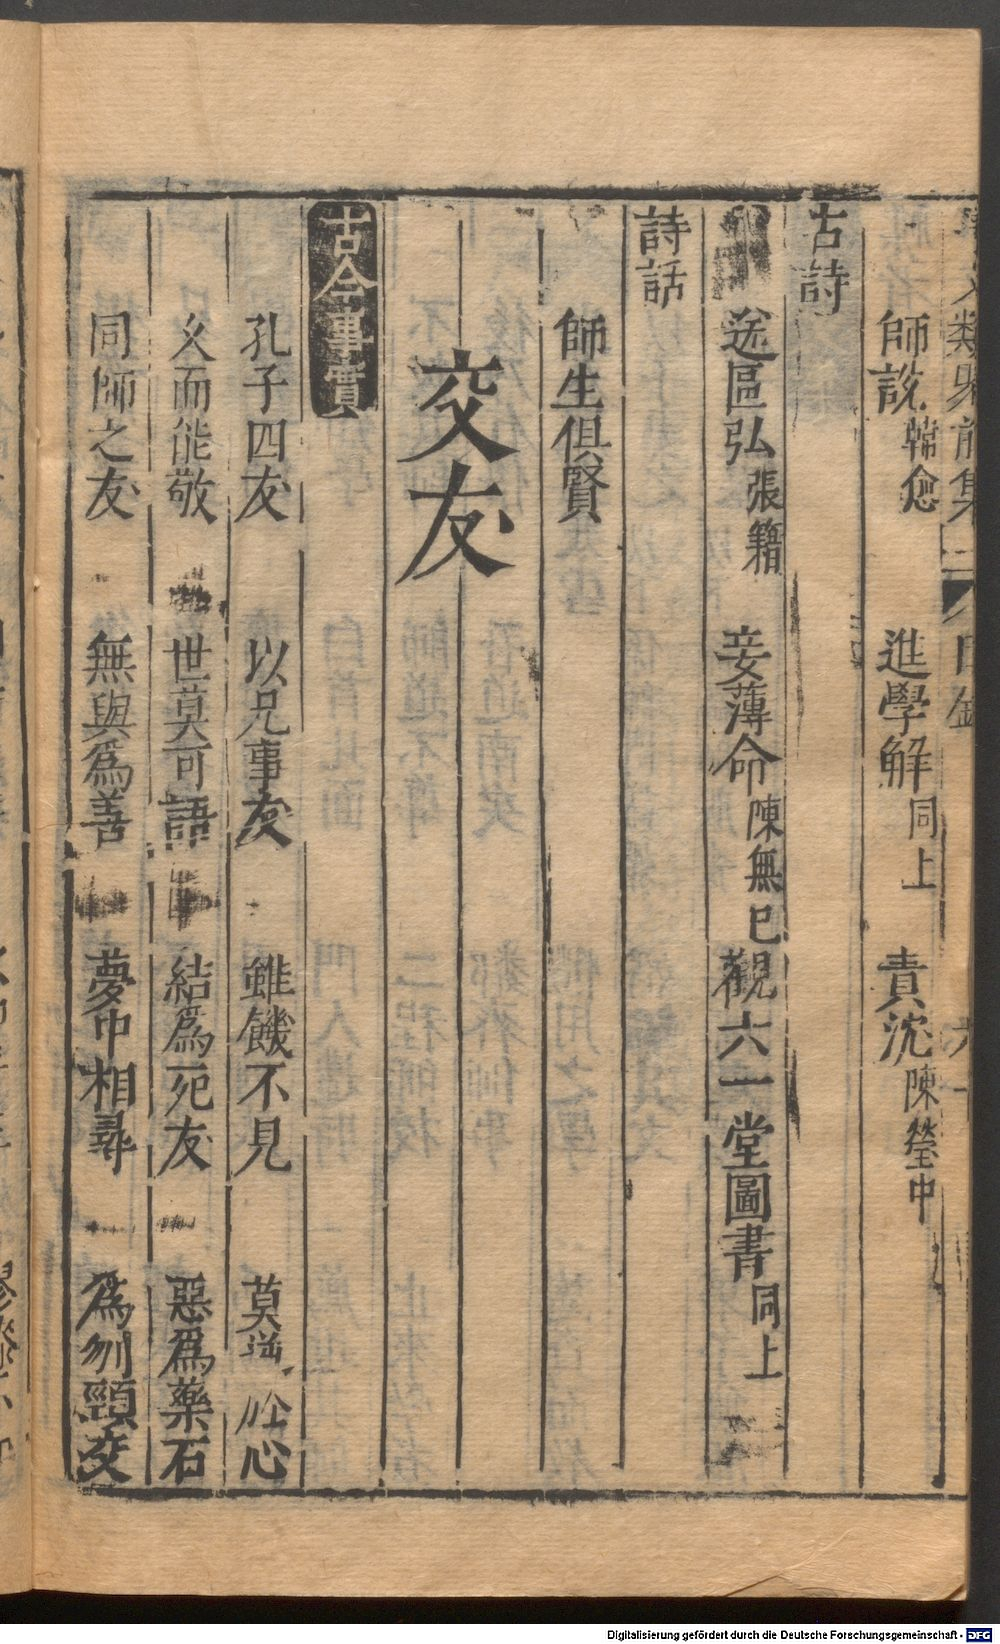 類聚前集 目錄 六十
師說韓愈 進學解同上 責沈陳瑩中
古詩
送區弘張籍 妾薄命陳無已 觀六一堂圖書同上
詩話
師生俱賢
交友
古今事實
孔子四友 以兄事友 雖饑不見 莫逆於心
久而能敬 世莫可語 結為死友 惡為藥石
同師之友 無與為善 夢中相尋 為刎頸交
Digitalisierung gefördert durch die Deutsche Forschungsgemeinschaft - DFG